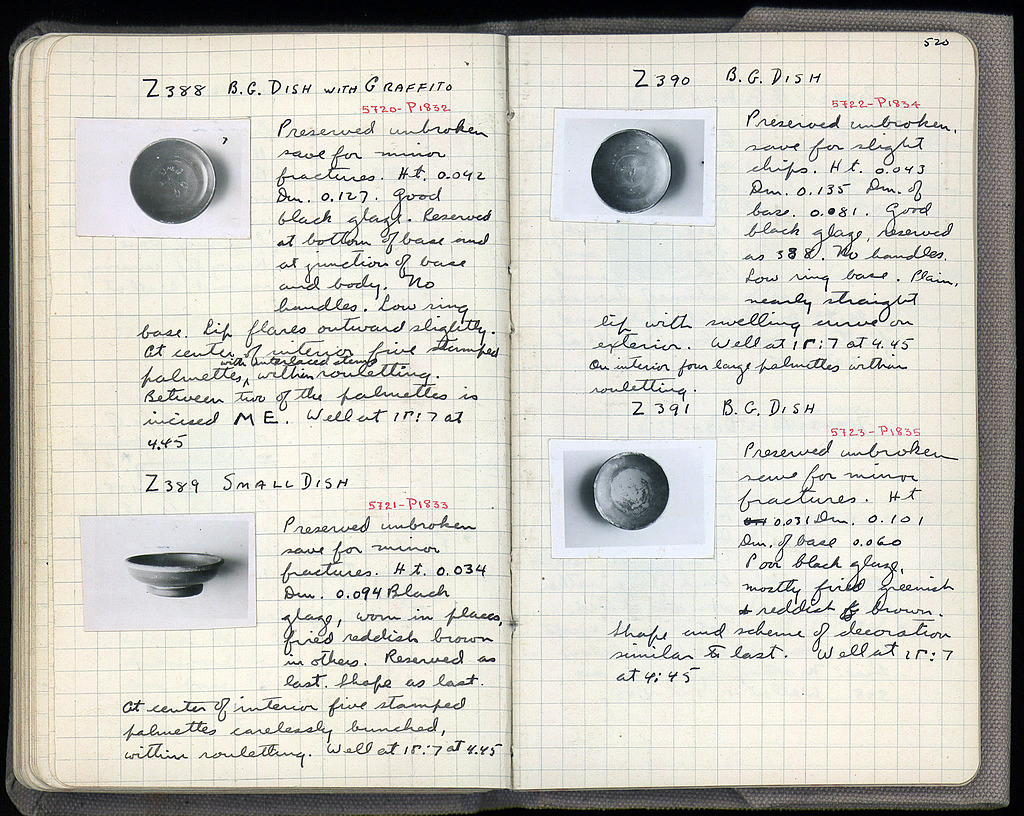 Z 388 B.G. DISH WITH GRAFFITO
5720-P1832
Preserved unbroken
save for minor
fractures. Ht. 0.042
Dm. 0.127. Good
black glaze. Reserved
at bottom of base and
at junction of base
and body. No
handles. Low ring
base. Lip flares outward slightly.
At center of interior five stamped
with interlaced stems
palmettes, within rouletting.
Between two of the palmettes is
incised ME. Well at 
4.45
Z 389 SMALL DISH
5721-P1833
Preserved unbroken
save for minor
fractures. Ht. 0.034
Dm. 0.094 Black
glaze, worn in places,
fired reddish brown
in others. Reserved as
last. Shape as last.
At center of interior five stamped
palmettes carelessly bunched,
within rouletting. Well at at 4.45
520
Z 390 B.G. DISH
5722-P1834
Preserved unbroken,
save for slight
chips. Ht. 0.043
Dm. 0.135 Dm. of
base. 0.081. Good
black glaze, reserved
as 388. No handles.
Low ring base. Plain,
nearly straight
lip with swelling curve on
exterior. Well at at 4.45
On interior four large palmettes within
rouletting.
Z 391 B.G. DISH
5723-P1835
Preserved unbroken
save for minor
fractures. Ht
0.031 Dm. 0.101
Dm. of base 0.060
Poor black glaze,
mostly fired greenish
reddish brown.
Shape and scheme of decoration
similar to last. Well at
at 4:45